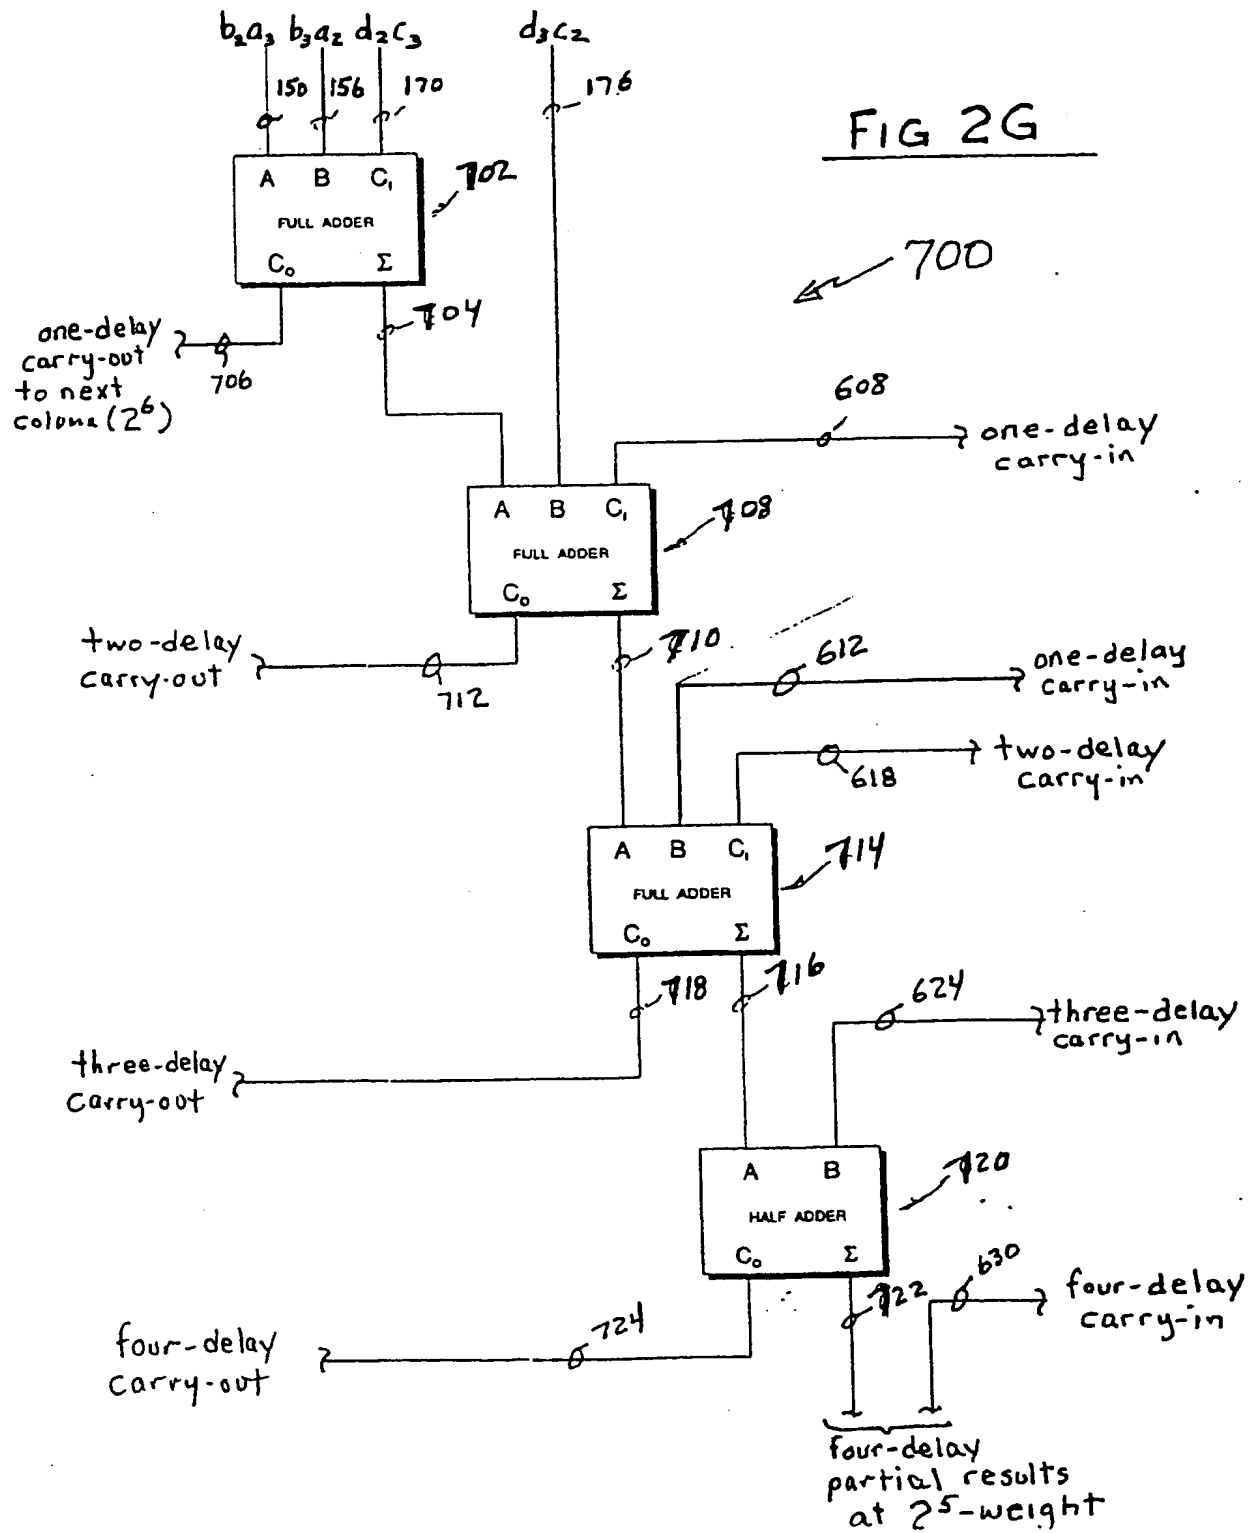 b₂a₃ b₃a₂ d₂c₃ d₃c₂
150 156 170 176
FIG 2G
A B C₁
FULL ADDER
C₀ Σ
702
700
704
one-delay
carry-out
to next
colomn (2⁶)
706
608
one-delay
carry-in
A B C₁
FULL ADDER
C₀ Σ
708
two-delay
carry-out
712
710
612
one-delay
carry-in
618
two-delay
carry-in
A B C₁
FULL ADDER
C₀ Σ
714
718
716
three-delay
carry-out
624
three-delay
carry-in
A B
HALF ADDER
C₀ Σ
720
722
630
four-delay
carry-in
724
four-delay
carry-out
four-delay
partial results
at 2⁵-weight